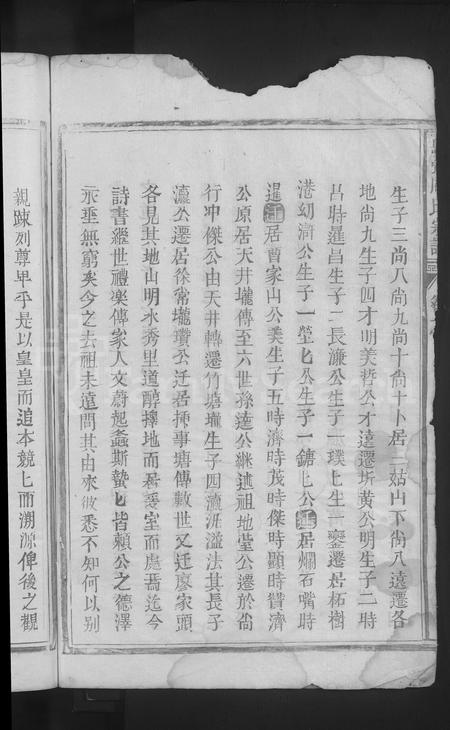 生子三尚八尚九尚十尚十卜居三姑山下尚八遠遷各
地尚九生子四才明美哲公才遠遷圻黄公明生子二時
昌時暹昌生子一長濂公生子一璞璞生一鑾遷居柘樹
港幼漪公生子一塋七公生子一鏞七公迁居爛石嘴時
暹迁居曾家山公美生子五時濟時茂時傑時顯時贊濟
公原居天井壠傳至六世孫達公繼述祖地瑩公遷於尚
行冲傑公由天井轉遷竹塘壠生子四瀛涯溢法其長子
瀛公遷居徐常壠瓚公迁居捇事塘傳數世又迁廖家頭
各見其地山明水秀里道醇擇地而居爰室而處焉迄今
詩書繼世禮樂傳家人文蔚起螽斯蟄七皆賴公之德澤
永垂無窮矣今之去祖未遠問其由來攸悉不知何以别
親踈列尊卑乎是以皇皇而追本競上而溯源俾後之觀